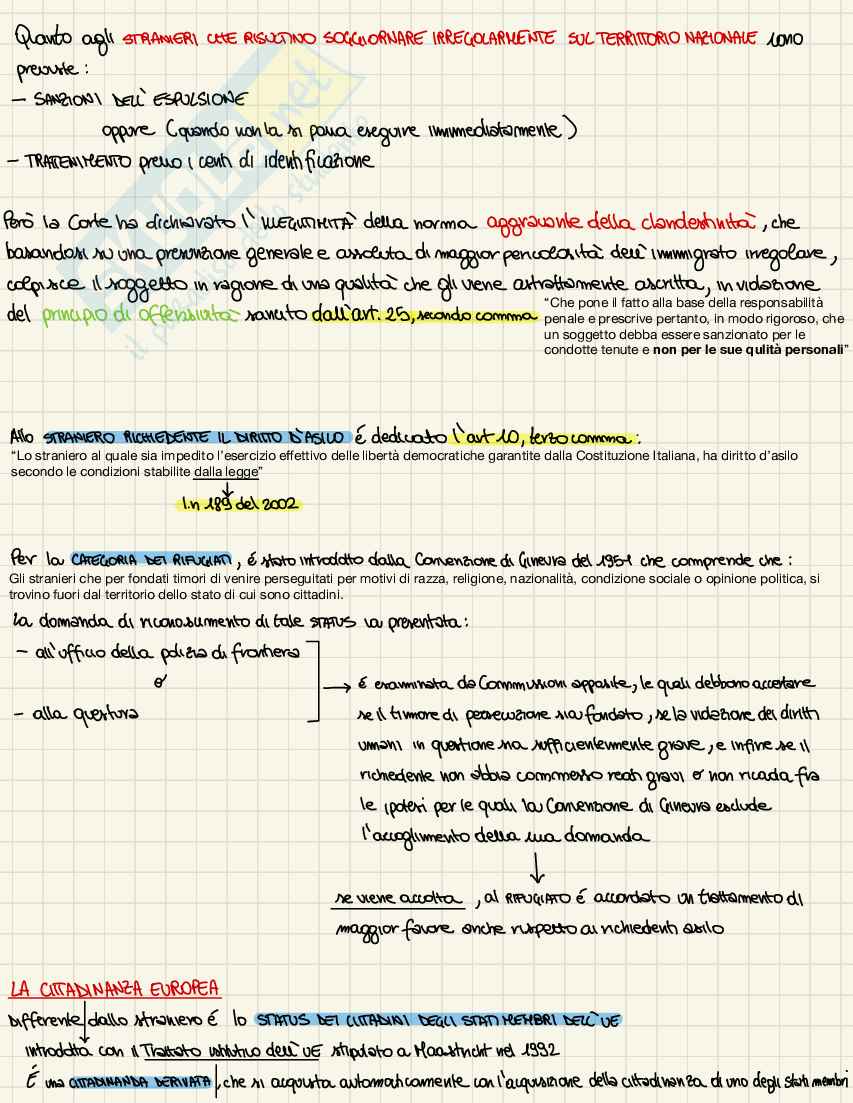 Quanto agli STRANIERI CHE RISULTINO SOGGIORNARE IRREGOLARMENTE SUL TERRITORIO NAZIONALE sono
previste:
- SANZIONI DELL'ESPULSIONE
oppure (quando non la si possa eseguire immediatamente)
- TRATTENIMENTO presso i centri di identificazione
Però la Corte ha dichiarato l'ILLEGITTIMITÀ della norma aggravante della clandestinità, che
basandosi su una presunzione generale e assoluta di maggior pericolosità dell'immigrato irregolare,
colpisce il soggetto in ragione di una qualità che gli viene astrattamente ascritta, in violazione
del principio di offensività sancito dall'art. 25, secondo comma
"Che pone il fatto alla base della responsabilità
penale e prescrive pertanto, in modo rigoroso, che
un soggetto debba essere sanzionato per le
condotte tenute e non per le sue qulità personali"
Allo STRANIERO RICHIEDENTE IL DIRITTO D'ASILO é dedicato l'art 10, terzo comma:
"Lo straniero al quale sia impedito l'esercizio effettivo delle libertà democratiche garantite dalla Costituzione Italiana, ha diritto d'asilo
secondo le condizioni stabilite dalla legge"
l.n 189 del 2002
Per la CATEGORIA DEI RIFUGIATI, é stato introdotto dalla Convenzione di Ginevra del 1951 che comprende che:
Gli stranieri che per fondati timori di venire perseguitati per motivi di razza, religione, nazionalità, condizione sociale o opinione politica, si
trovino fuori dal territorio dello stato di cui sono cittadini.
La domanda di riconoscimento di tale STATUS va presentata:
- all'ufficio della polizia di frontiera
o
- alla questura
é esaminata da Commissioni apposite, le quali debbono accertare
se il timore di persecuzione sia fondato, se la violazione dei diritti
umani in questione sia sufficientemente grave, e infine se il
richiedente non abbia commesso reati gravi o non ricada fra
le ipotesi per le quali la Convenzione di Ginevra esclude
l'accoglimento della sua domanda
se viene accolta, al RIFUGIATO é accordato un trattamento di
maggior favore anche rispetto ai richiedenti asilo
LA CITTADINANZA EUROPEA
Differente dallo straniero é lo STATUS DEI CITTADINI DEGLI STATI MEMBRI DELL'UE
introdotta con il Trattato istitutivo dell'UE stipulato a Maastricht nel 1992
É una CITTADINANDA DERIVATA, che si acquista automaticamente con l'acquisizione della cittadinanza di uno degli stati membri
SKUOLA.net
il paradiso dello studente